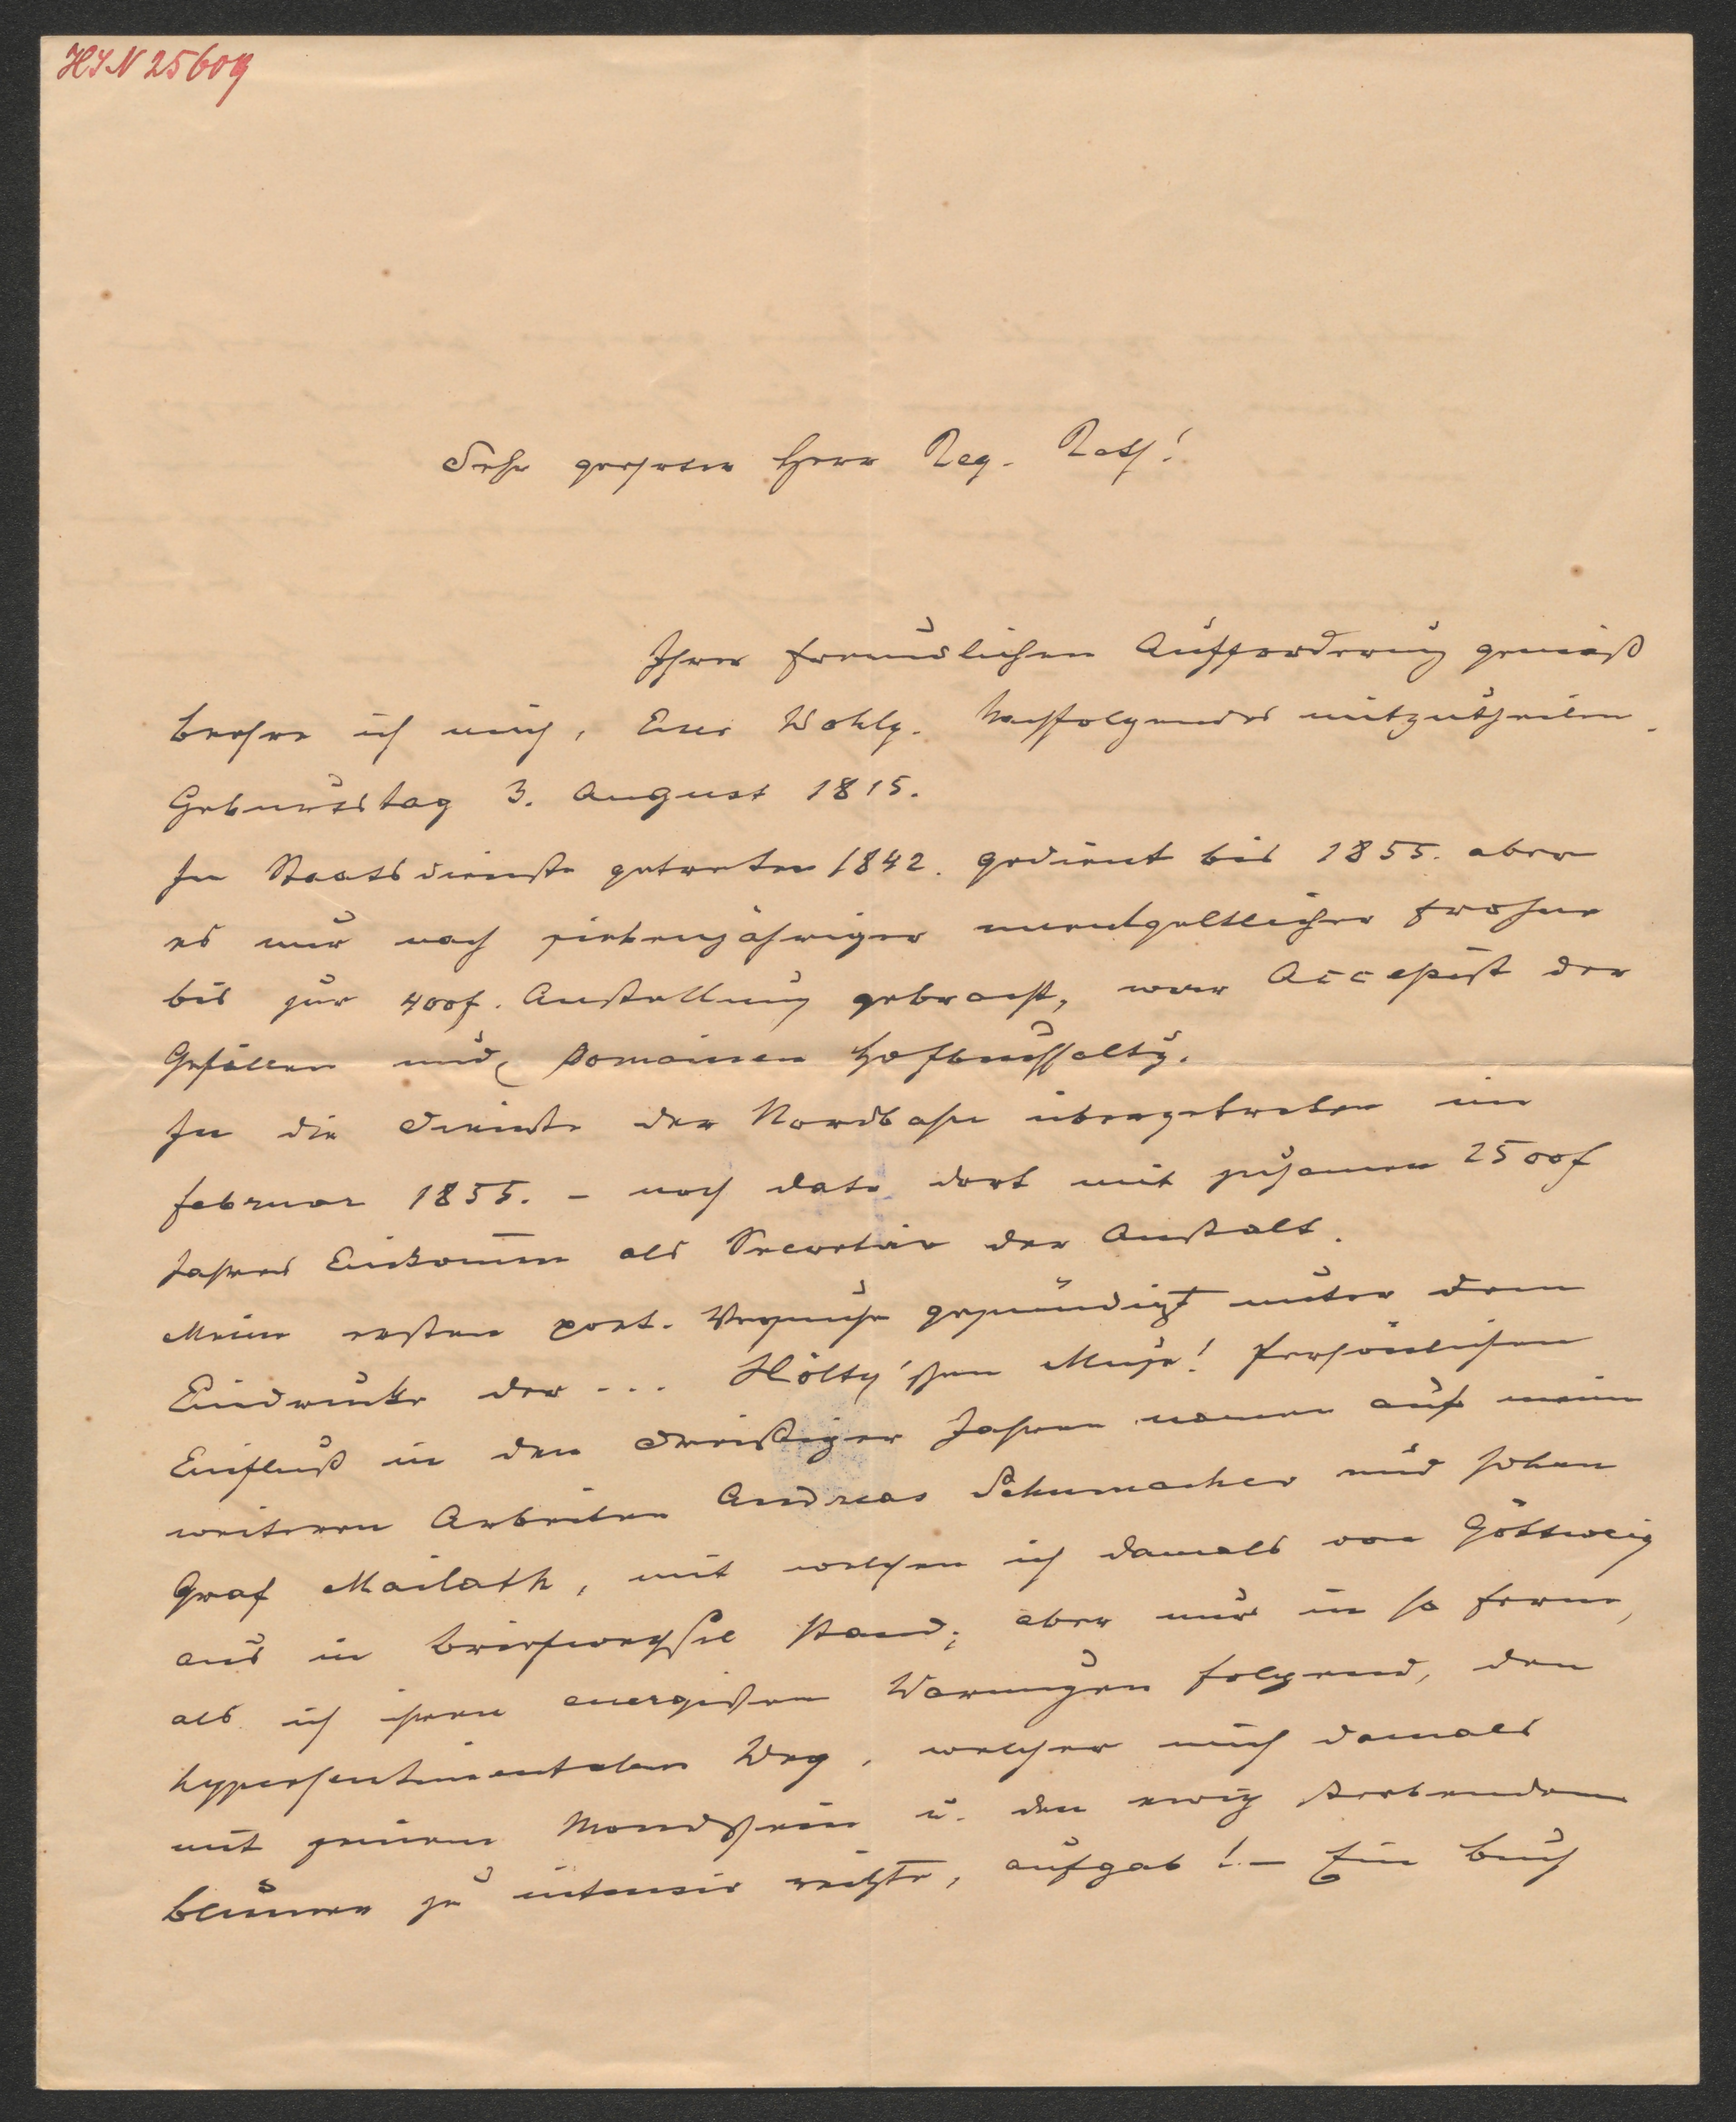 HIN 25609
Sehr geehrter Herr Reg. Rath!
Ihrer freundlichen Aufforderung gemäß
beehre ich mich, Euer Wohlg. Nachfolgendes mitzutheilen.
Geburtstag 3. August 1815.
In Staatsdienste getreten 1842. gedient bis 1855. aber
es nur nach siebenjähriger unentgeltlicher Frohne
bis zur 400f. Anstellung gebracht, war Accessist der
Gefällen und Domainen Hofbuchhaltg.
In die Dienste der Nordbahn übergetreten im
Februar 1855. – noch dato dort mit zusamen 2500f
Jahres Einkomen als Secretär der Anstalt.
Meine ersten poet. Versuche gesündigt unter dem
Eindrucke der ... Hölty'schen Muse! Persönlichen
Einfluß in den dreißiger Jahren namen auf meine
weiteren Arbeiten Andreas Schumacher und Johan
Graf Mailath, mit welchen ich damals von Göttweig
aus in Briefwechsel stand; aber nur in so ferne,
als ich ihren energischen Warnungen folgend, den
hypersentimentalen Weg, welcher mich damals
mit seinem Mondschein u. den ewig sterbenden
Blumen zu intensiv reizte, aufgab! – Ein Buch